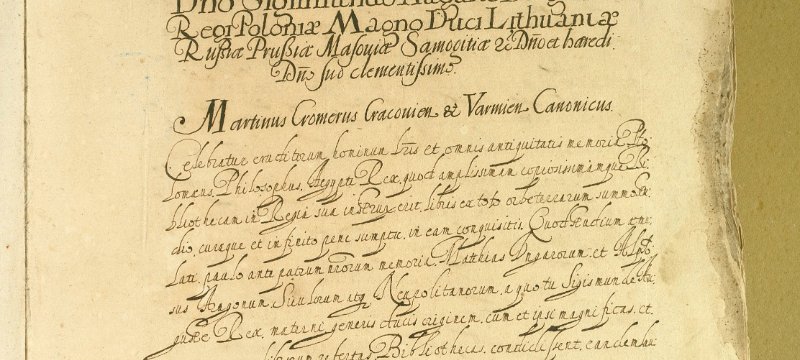 Dno Sigismundo Augusto
Regi Poloniæ Magno Duci Lithuaniæ
Russiæ Prussiæ Masoviæ Samogitiæ &c Dno et hæredi
Dno suo clementissimo.
Martinus Cromerus Cracovien & Varmien Canonicus.
Celebratur eruditorum hominum lris et omnis antiquitatis memoria Pto
lomeus Philosophus, Aegypti Rex, quod amplissimam copiosissimamque Bi
bliothecam in Regia sua instruxerit, libris ex toto orbe terrarum summo stu
dio, curaque et infinito pene sumptu, in eam conquisitis. Quod studium æmu
lati, paulo ante patrum nrorum memoria Mathias Ungarorum, et Alphō
sus Aragonum, Siculorum atq; Neapolitanorum, a quo tu Sigismunde Au
guste Rex, materni generis ducis originem, cum et ipsi magnificas, et
librorum refertas Bibliothecas, condidissent, eandem hu